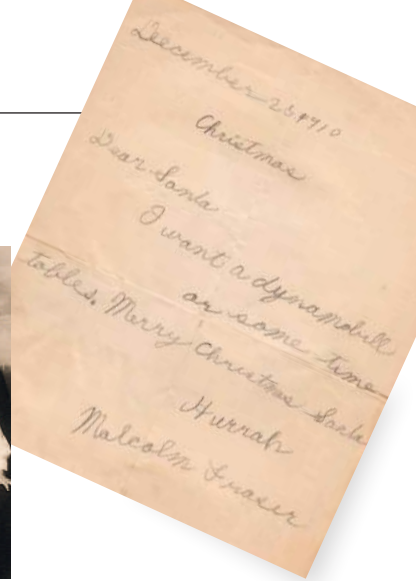 December 23, 1910
Christmas
Dear Santa
I want a dynamobill
or some time
tables. Merry Christmas Santa
Hurrah
Malcolm Fraser